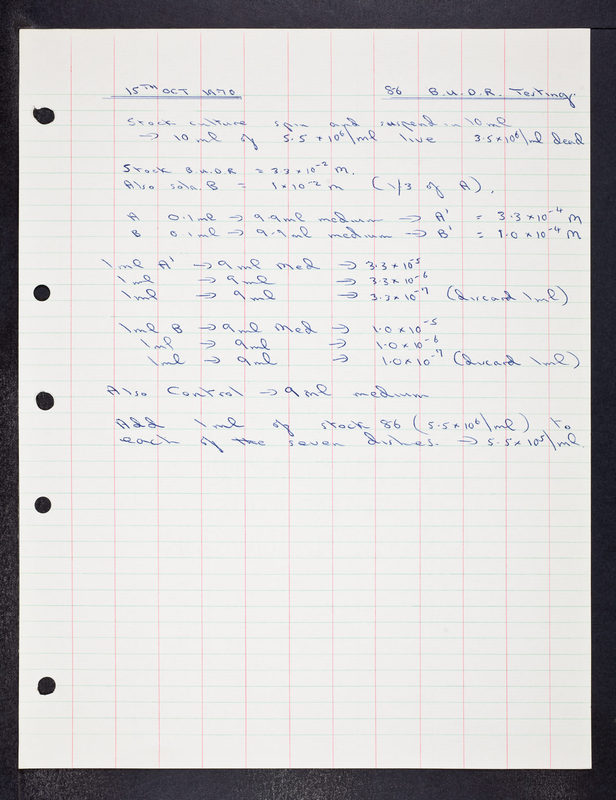 15TH OCT 1970 86 B.U.D.R. Testing.
Stock culture spin and suspend in 10 ml
→ 10 ml of 5.5 × 10⁶/ml live 3.5 × 10⁶/ml dead
Stock B.U.D.R = 3.3 × 10⁻² M.
Also soln. B = 1 × 10⁻² M (1/3 of A).
A 0.1 ml → 9.9 ml medium → A' = 3.3 × 10⁻⁴ M
B 0.1 ml → 9.9 ml medium → B' = 1.0 × 10⁻⁴ M
1 ml A' → 9 ml Med → 3.3 × 10⁻⁵
1 ml → 9 ml → 3.3 × 10⁻⁶
1 ml → 9 ml → 3.3 × 10⁻⁷ (discard 1 ml)
1 ml B → 9 ml Med → 1.0 × 10⁻⁵
1 ml → 9 ml → 1.0 × 10⁻⁶
1 ml → 9 ml → 1.0 × 10⁻⁷ (discard 1 ml)
Also Control → 9 ml medium
Add 1 ml of stock 86 (5.5 × 10⁶/ml) to
each of the seven dishes. → 5.5 × 10⁵/ml.